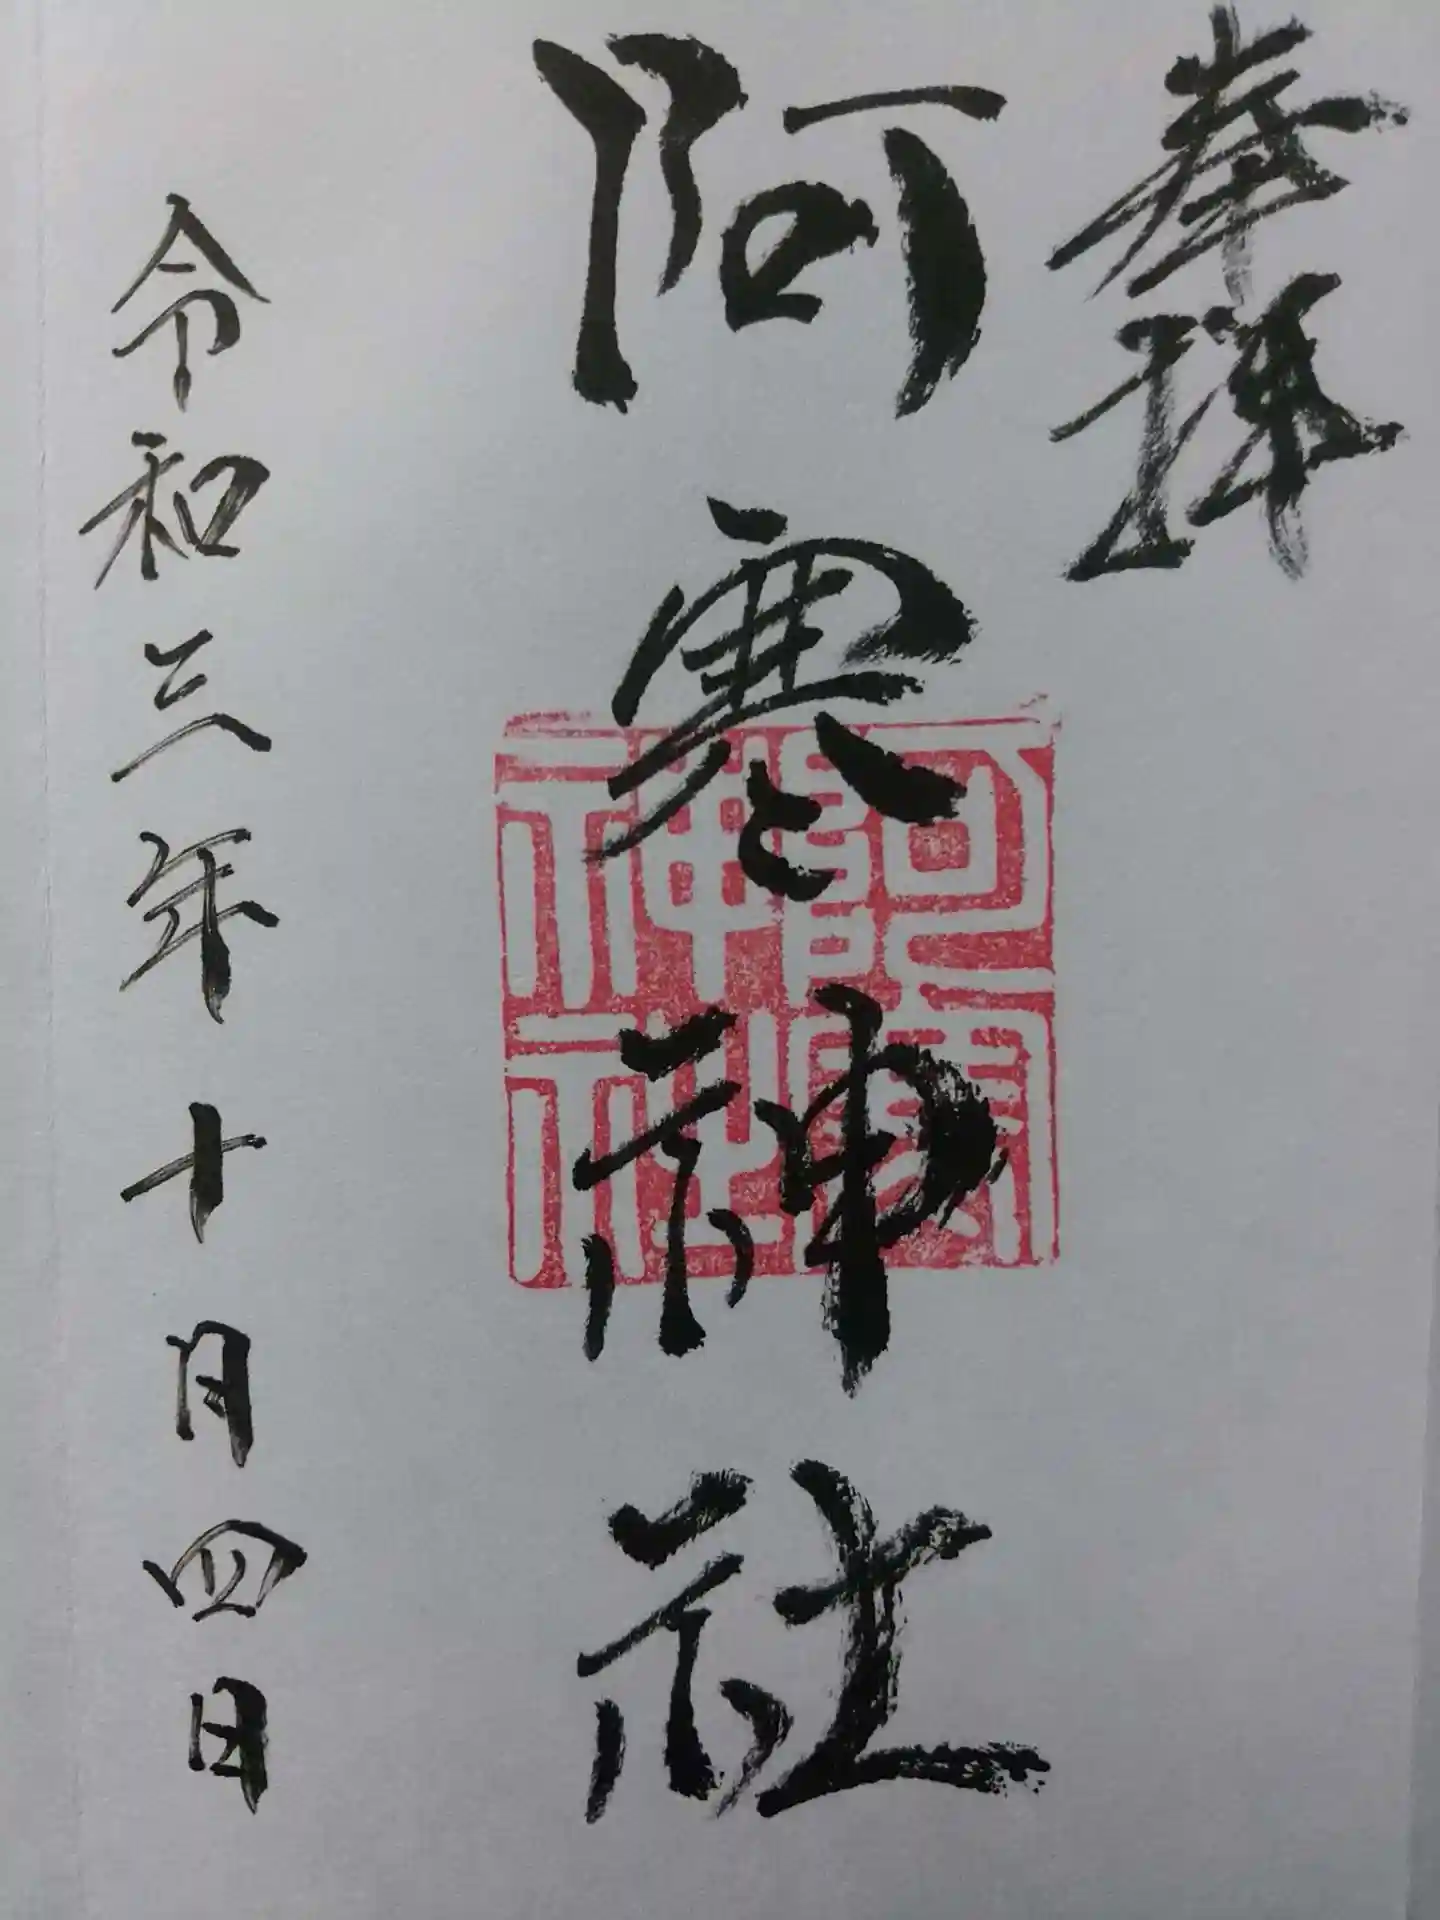 奉拝
阿寒神社
阿寒神社
令和三年十月四日